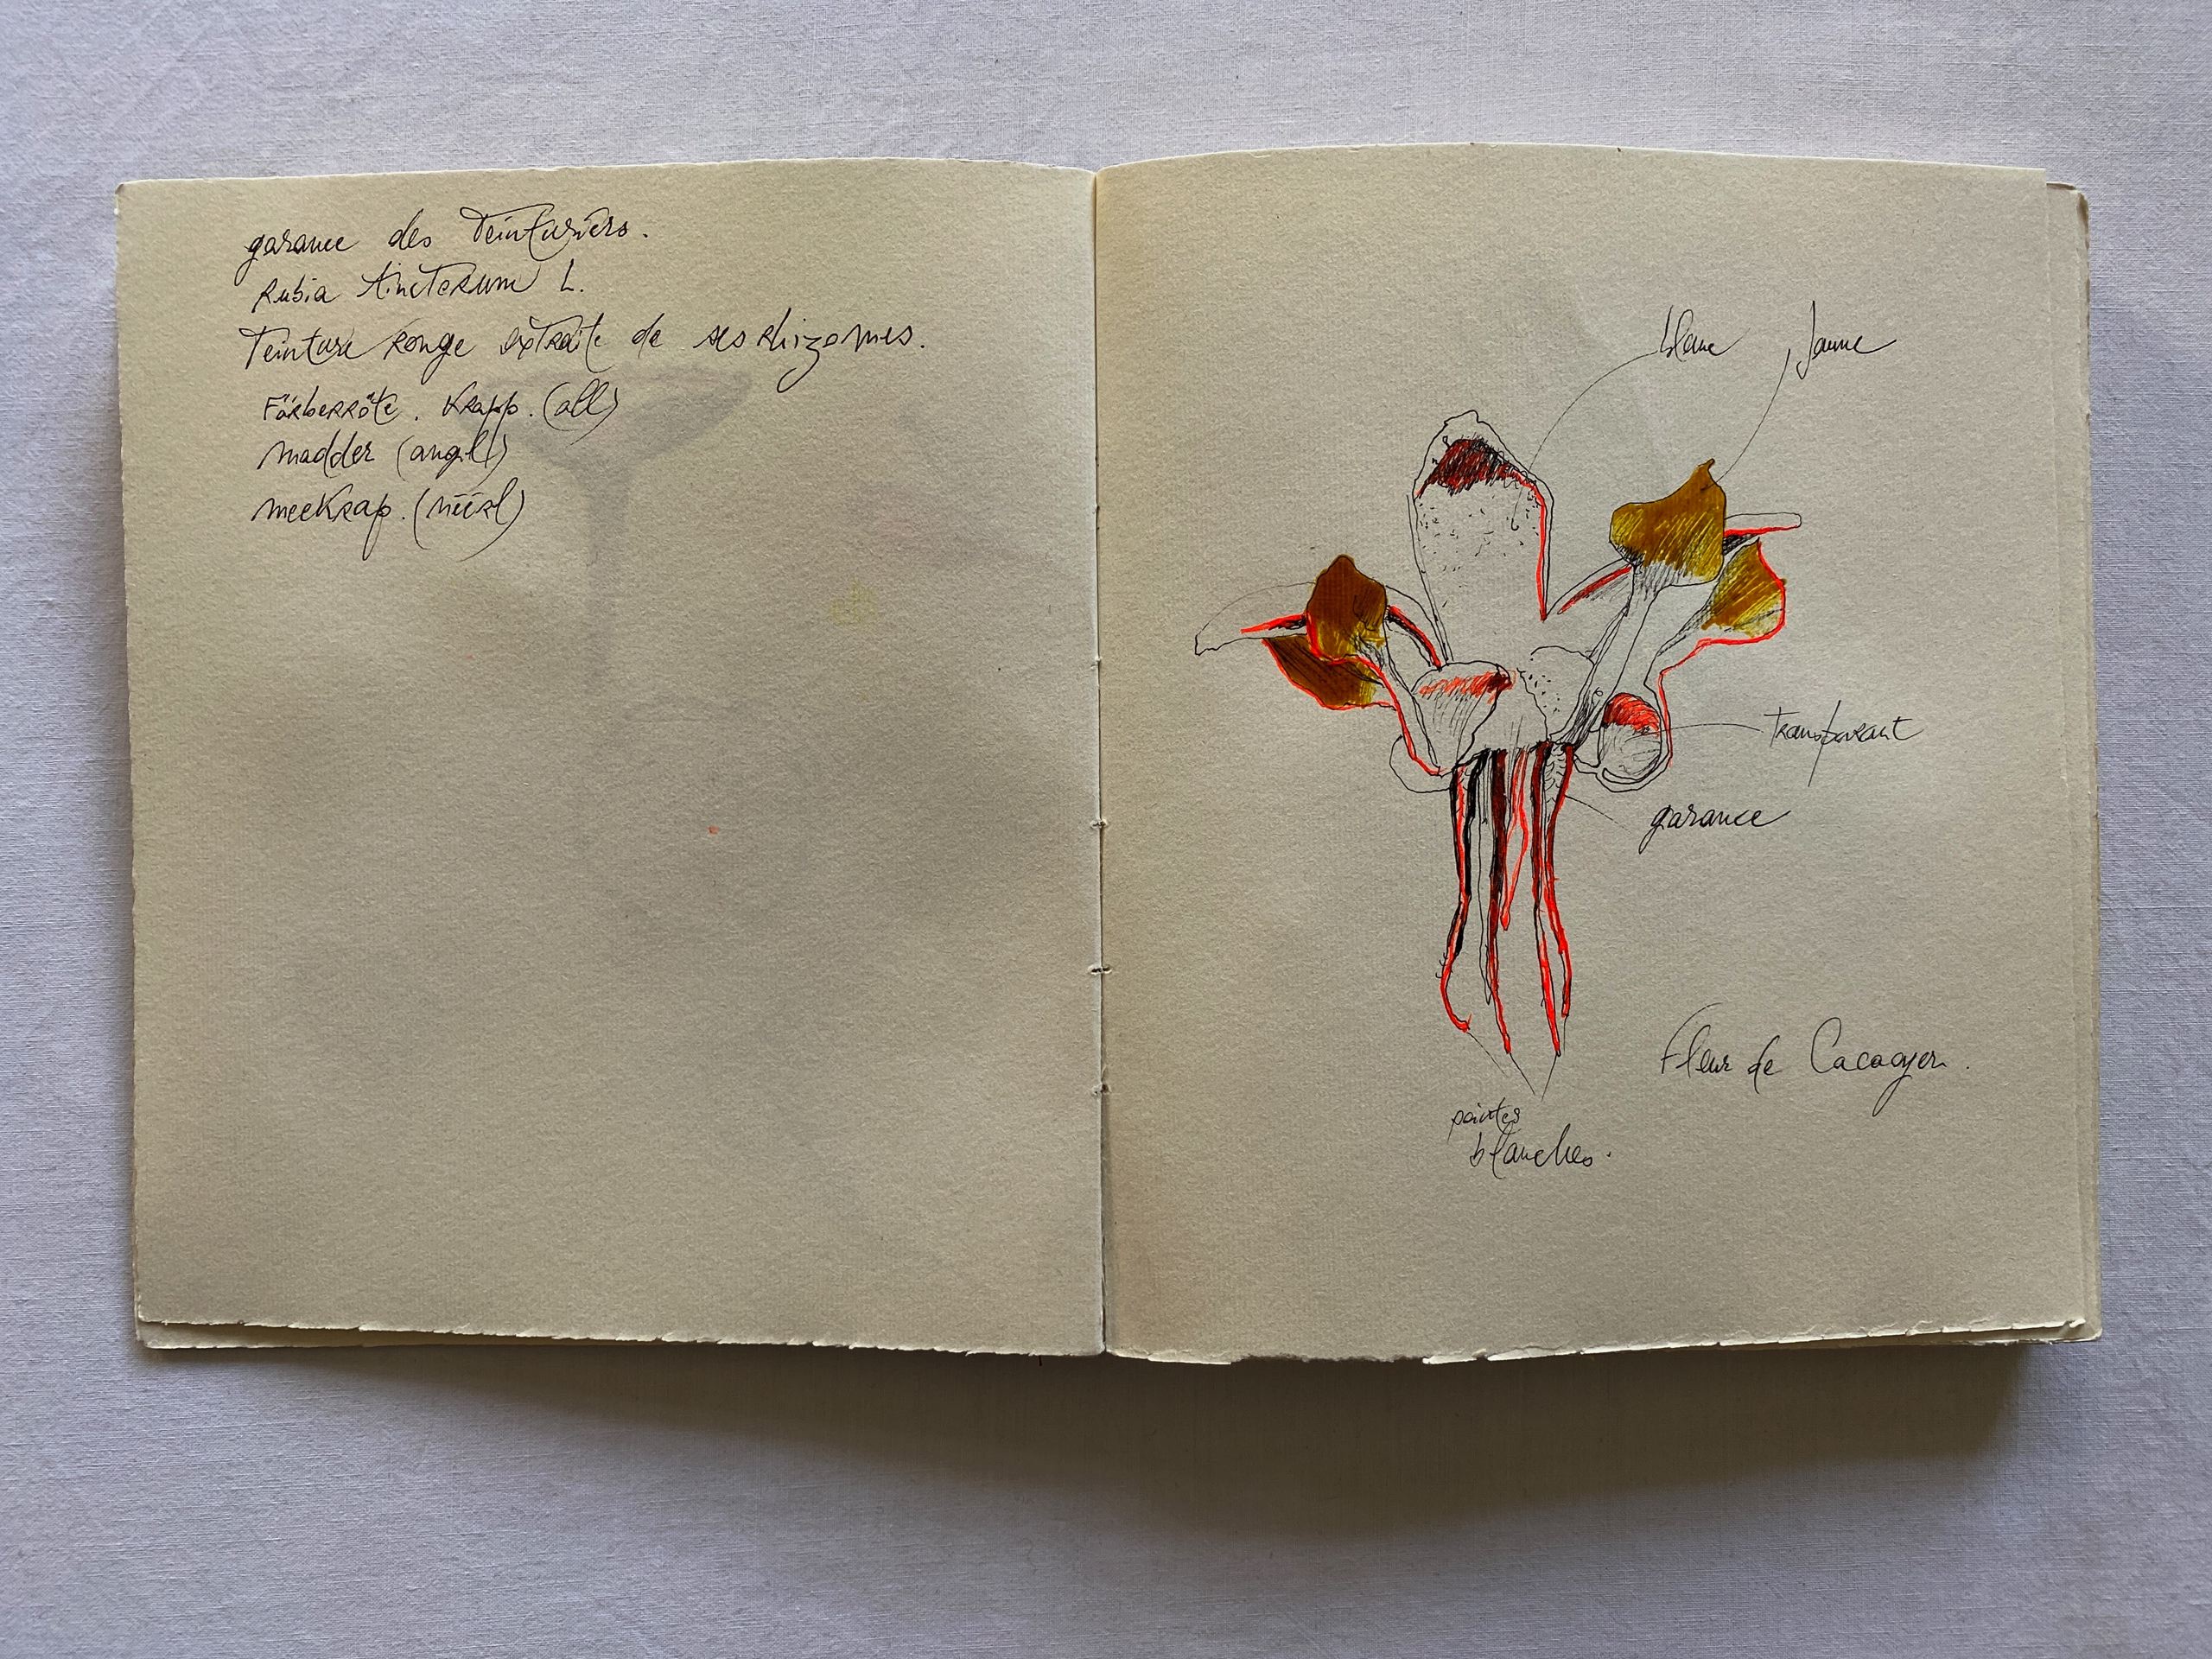 garance des Teinturiers.
Rubia tincTorum L.
Teinture Rouge exTraite de ses Rhizomes.
Färberröte. Krapp. (all)
madder (angl)
meeKrap. (néérl)
blanc
jaune
transparant
garance
Fleur de Cacaoyer.
pointes
blanches.